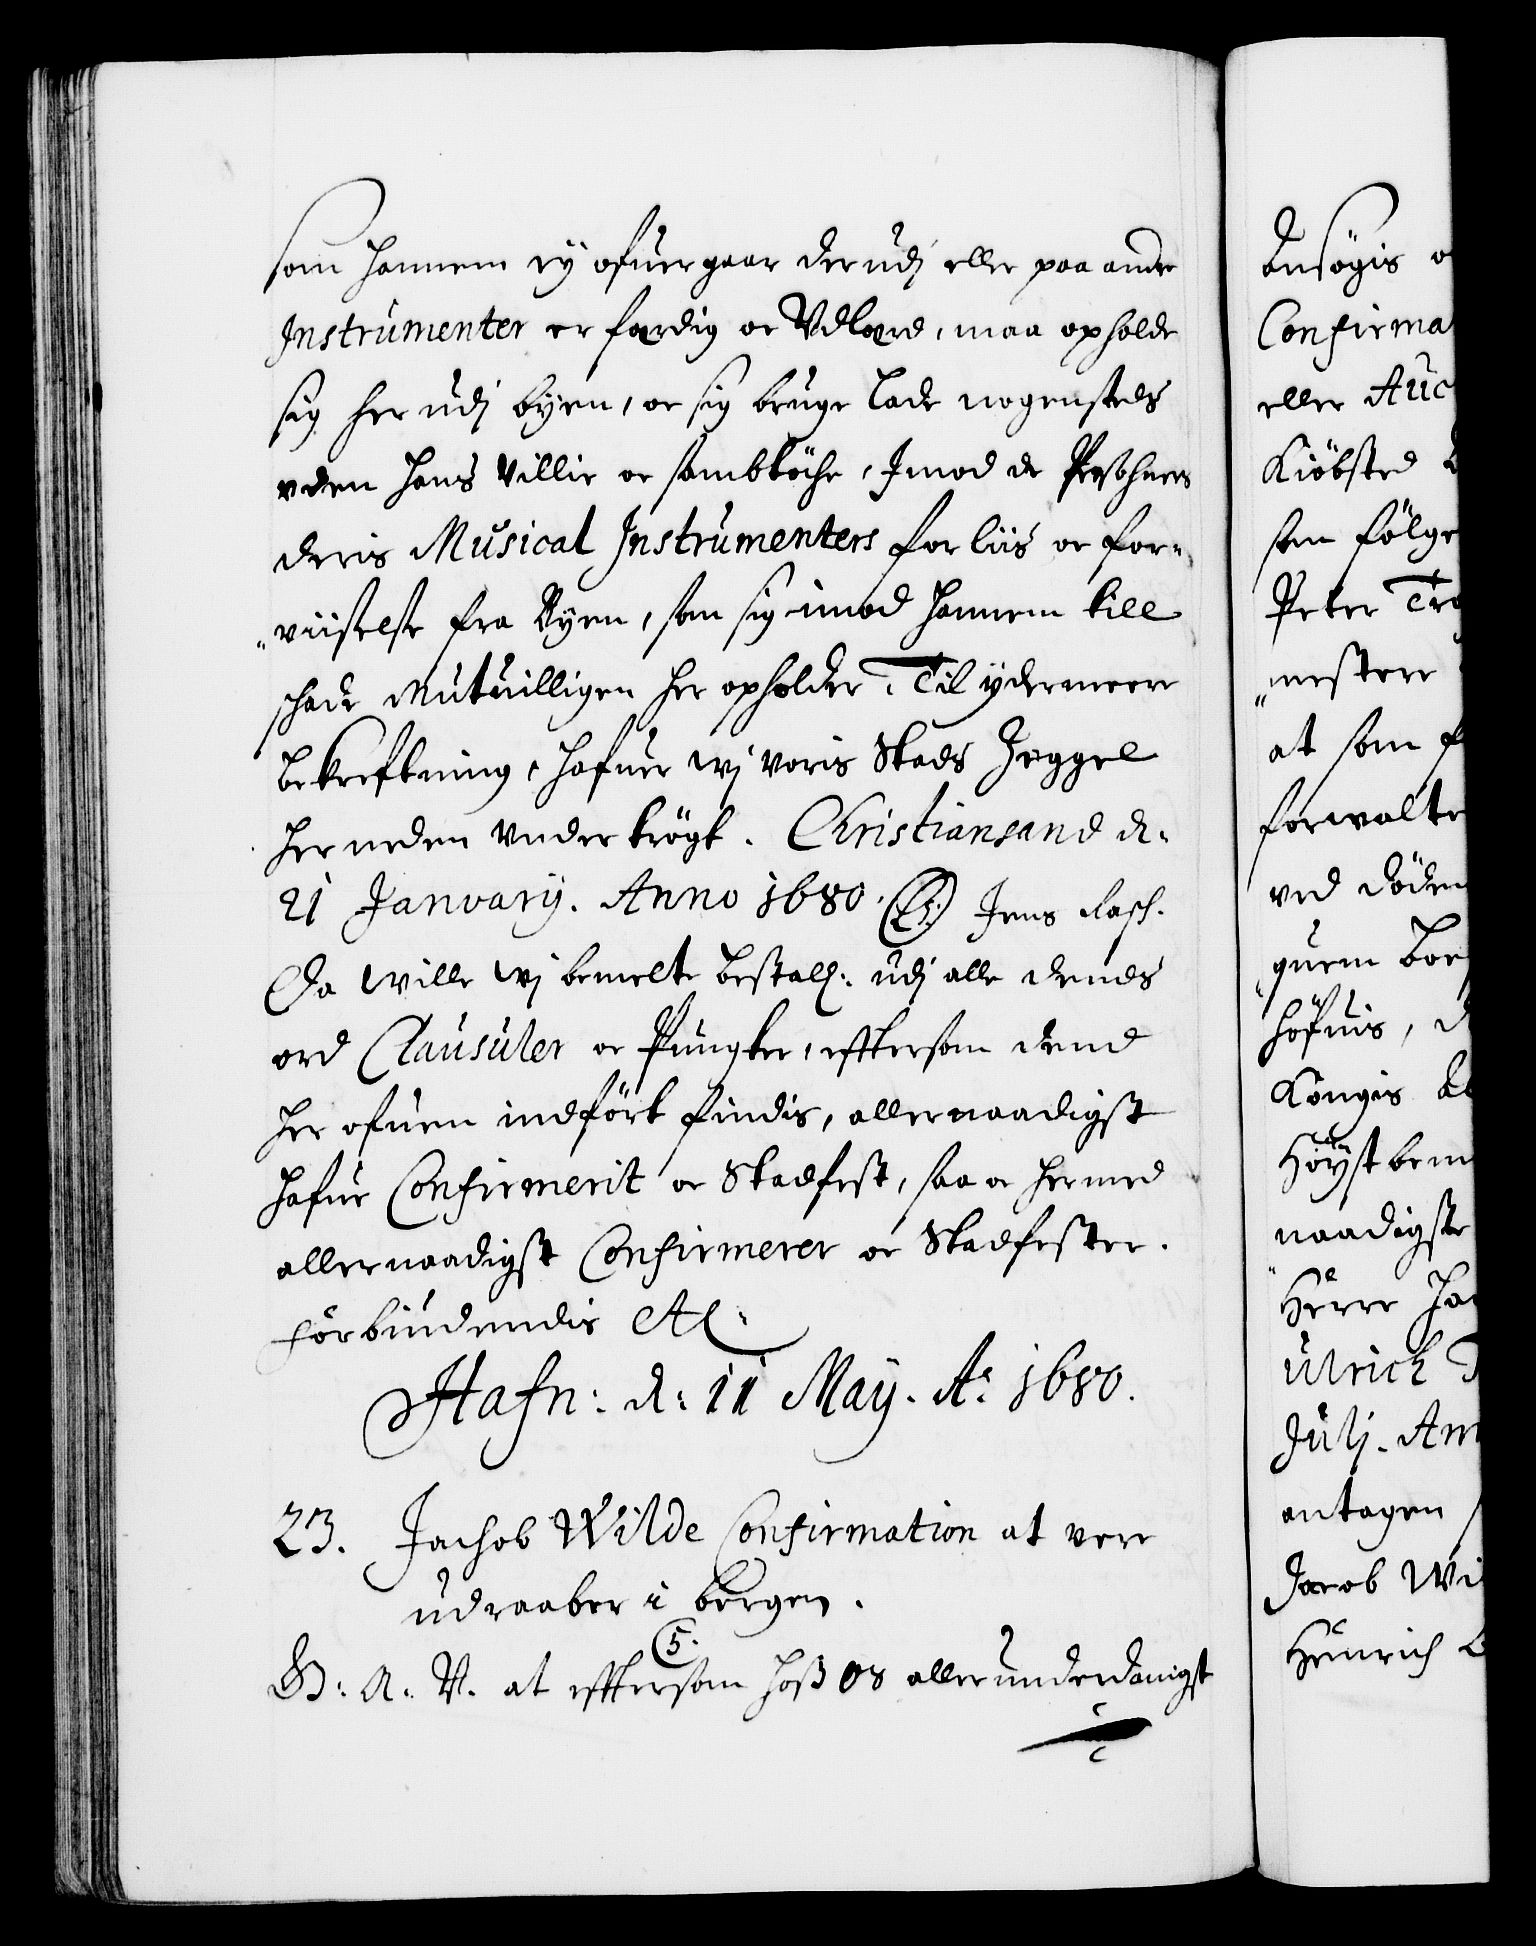 som hannem ey ofuergaar der udj eller paa andre
Instrumenter er færdig oc Vdlærd, maa opholde
sig her udj byen, oc sig bruge lade nogensteds
vden hans Villie oc sambtöche, Imod de Persohners
deris Musical Instrumenters forliis oc for-
viiselse fra Byen, som sig imod hannem till
schade Mutuilligen her opholder, Til ydermeere
bekreftning, hafuer wj voris Stads Zeggel
her neden Vnder trögt. Christiansand d.
21 January. Anno 1680. (LS:) Jens Rasch.
Da wille wj bemelte bestall: udj alle dends
ord Clausuler oc Pungter, eftersom dend
her ofuen indfört findis, allernaadigst
hafue Confirmerit oc Stadfest, saa oc hermed
allernaadigst Confirmerer oc Stadfester.
forbiudendis Al:
Hafn: d: 11 May. Ao 1680.
23. Jachob Wilde Confirmation at vere
udraaber i bergen.
5.
G: A: V. at eftersom hoß os allerunderdanigst
ansögis o
Confirma
eller Auc
Kiöbsted
som fölge
Peter
mester
at som f
forwalte
ved döden
quem
höfuis, d
Kongis
Höystbem
naadigste
Herre
Ulrich
Julj. Ann
antagen
Jacob Wi
Henrich